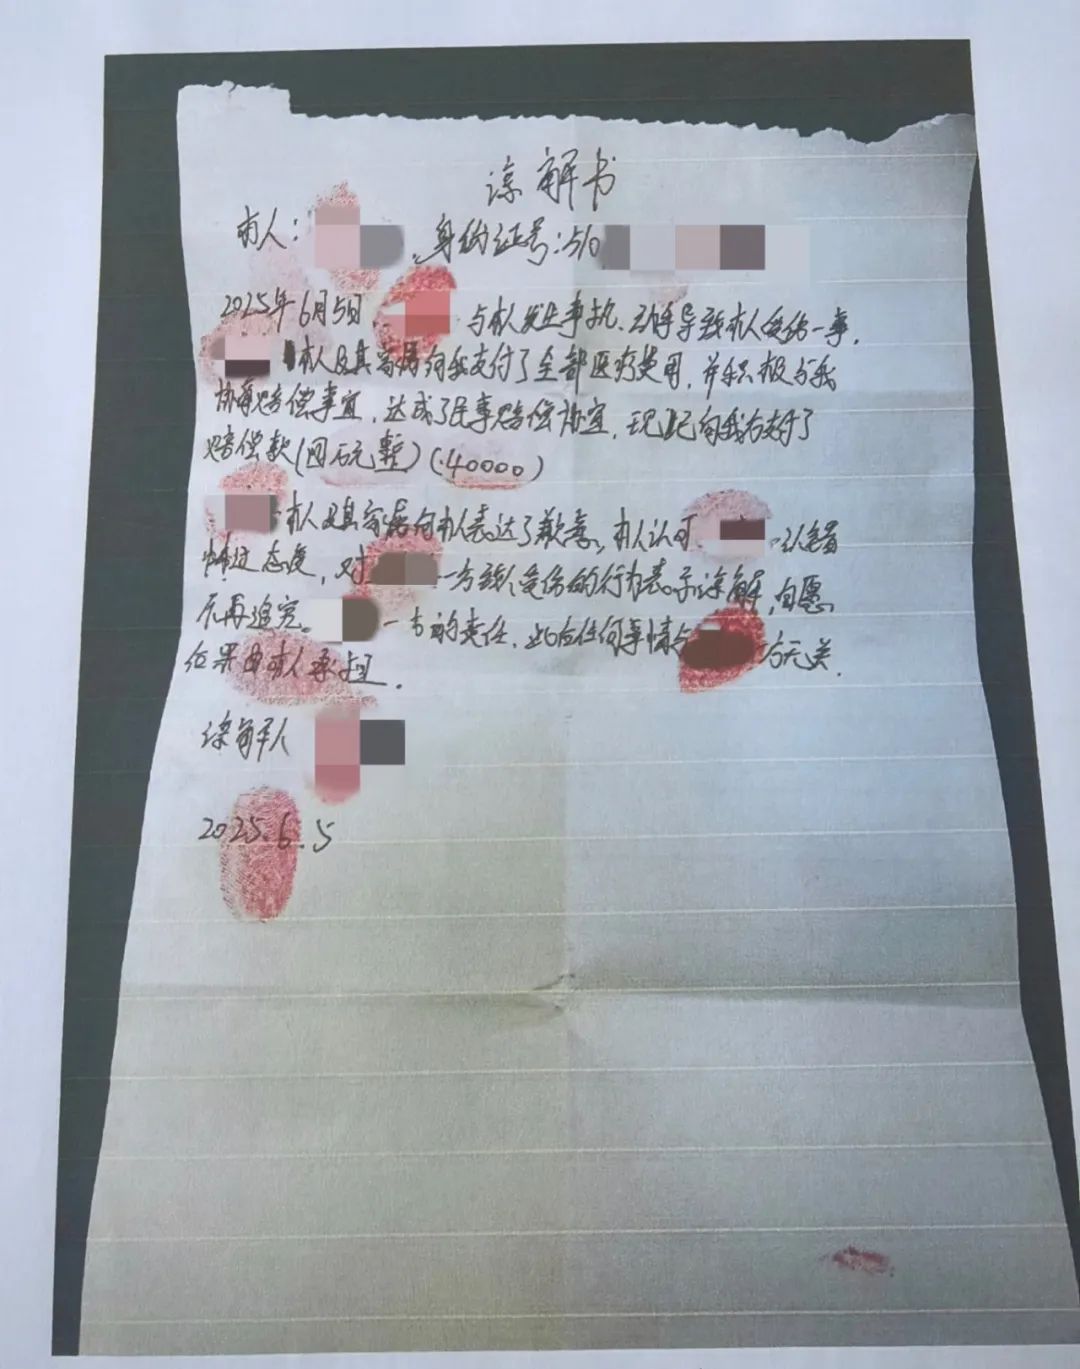 谅解书
本人： ，身份证号：510
2025年6月5日 与本人发生争执，动手导致本人受伤一事，
本人及其家属向我支付了全部医疗费用，并积极与我
协商赔偿事宜，达成了民事赔偿协宜，现已向我方支付了
赔偿款（四万元整）（40000）
本人及其家属向本人表达了歉意，本人认可 认错
悔过态度，对 一方致人受伤的行为表示谅解，自愿
不再追究 一方的责任，此后任何事情与 方无关，
后果由本人承担．
谅解人
2025.6.5